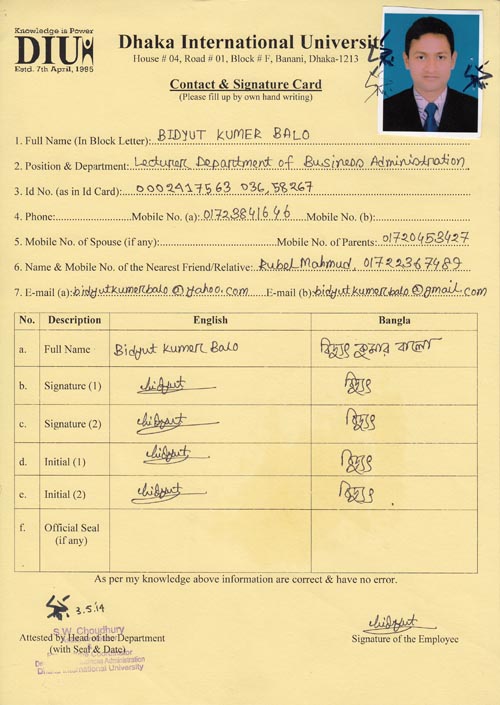 Knowledge is Power
DIU
Estd. 7th April, 1995
Dhaka International University
House # 04, Road # 01, Block # F, Banani, Dhaka-1213
Contact & Signature Card
(Please fill up by own hand writing)
1. Full Name (In Block Letter): BIDYUT KUMER BALO
2. Position & Department: Lecturer Department of Business Administration
3. Id No. (as in Id Card): 0002417563 036,58267
4. Phone: Mobile No. (a): 01723841646 Mobile No. (b):
5. Mobile No. of Spouse (if any): Mobile No. of Parents: 01720453427
6. Name & Mobile No. of the Nearest Friend/Relative: Rubel Mahmud, 01722367489
7. E-mail (a): bidyutkumerbalo@yahoo.com E-mail (b): bidyutkumerbalo@gmail.com
No. Description English Bangla
a. Full Name Bidyut Kumer Balo বিদ্যুৎ কুমার বালো
b. Signature (1) Bidyut বিদ্যুৎ
c. Signature (2) Bidyut বিদ্যুৎ
d. Initial (1) Bidyut বিদ্যুৎ
e. Initial (2) Bidyut বিদ্যুৎ
f. Official Seal
(if any)
As per my knowledge above information are correct & have no error.
3.5.14 Bidyut
S.W. Choudhury
Attested by Head of the Department Signature of the Employee
(with Seal & Date)
Coordinator
Business Administration
Dhaka International University